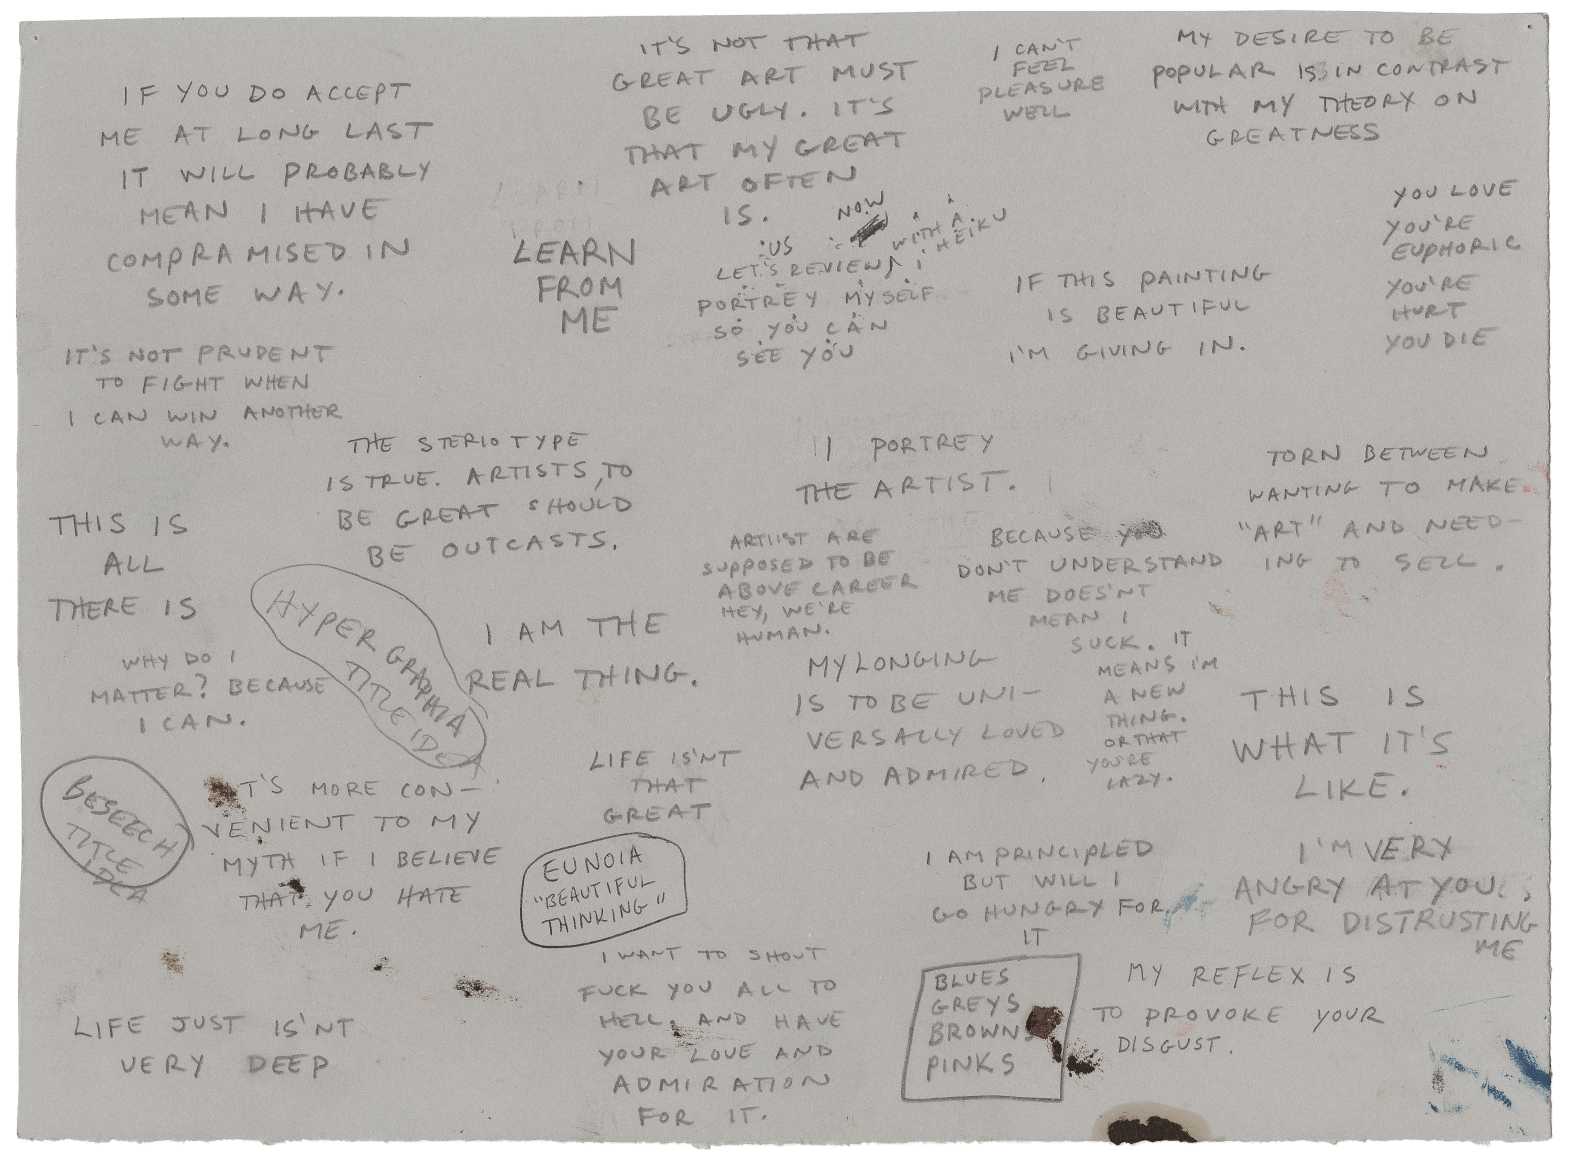 IF YOU DO ACCEPT
ME AT LONG LAST
IT WILL PROBABLY
MEAN I HAVE
COMPRAMISED IN
SOME WAY.
IT'S NOT THAT
GREAT ART MUST
BE UGLY. IT'S
THAT MY GREAT
ART OFTEN
IS.
I CAN'T
FEEL
PLEASURE
WELL
MY DESIRE TO BE
POPULAR IS IN CONTRAST
WITH MY THEORY ON
GREATNESS
LEARN
FROM
LEARN
FROM
ME
NOW
US
WITH A
HEIKU
LET'S REVIEW, I
PORTREY MYSELF
SO YOU CAN
SEE YOU
IF THIS PAINTING
IS BEAUTIFUL
I'M GIVING IN.
YOU LOVE
YOU'RE
EUPHORIC
YOU'RE
HURT
YOU DIE
IT'S NOT PRUDENT
TO FIGHT WHEN
I CAN WIN ANOTHER
WAY.
THE STERIOTYPE
IS TRUE. ARTISTS, TO
BE GREAT SHOULD
BE OUTCASTS.
I PORTREY
THE ARTIST.
TORN BETWEEN
WANTING TO MAKE
"ART" AND NEED-
ING TO SELL.
THIS IS
ALL
THERE IS
ARTIIST ARE
SUPPOSED TO BE
ABOVE CAREER
HEY, WE'RE
HUMAN.
BECAUSE YOU
DON'T UNDERSTAND
ME DOES'NT
MEAN I
SUCK. IT
MEANS I'M
A NEW
THING.
OR THAT
YOU'RE
LAZY.
HYPERGRAPHIA
TITLE IDEA
I AM THE
REAL THING.
WHY DO I
MATTER? BECAUSE
I CAN.
MY LONGING
IS TO BE UNI-
VERSALLY LOVED
AND ADMIRED.
THIS IS
WHAT IT'S
LIKE.
BESEECH
TITLE
IDEA
IT'S MORE CON-
VENIENT TO MY
MYTH IF I BELIEVE
THAT YOU HATE
ME.
LIFE IS'NT
THAT
GREAT
EUNOIA
"BEAUTIFUL
THINKING"
I AM PRINCIPLED
BUT WILL I
GO HUNGRY FOR
IT
I'M VERY
ANGRY AT YOU
FOR DISTRUSTING
ME
I WANT TO SHOUT
FUCK YOU ALL TO
HELL, AND HAVE
YOUR LOVE AND
ADMIRATION
FOR IT.
BLUES
GREYS
BROWNS
PINKS
MY REFLEX IS
TO PROVOKE YOUR
DISGUST.
LIFE JUST IS'NT
VERY DEEP